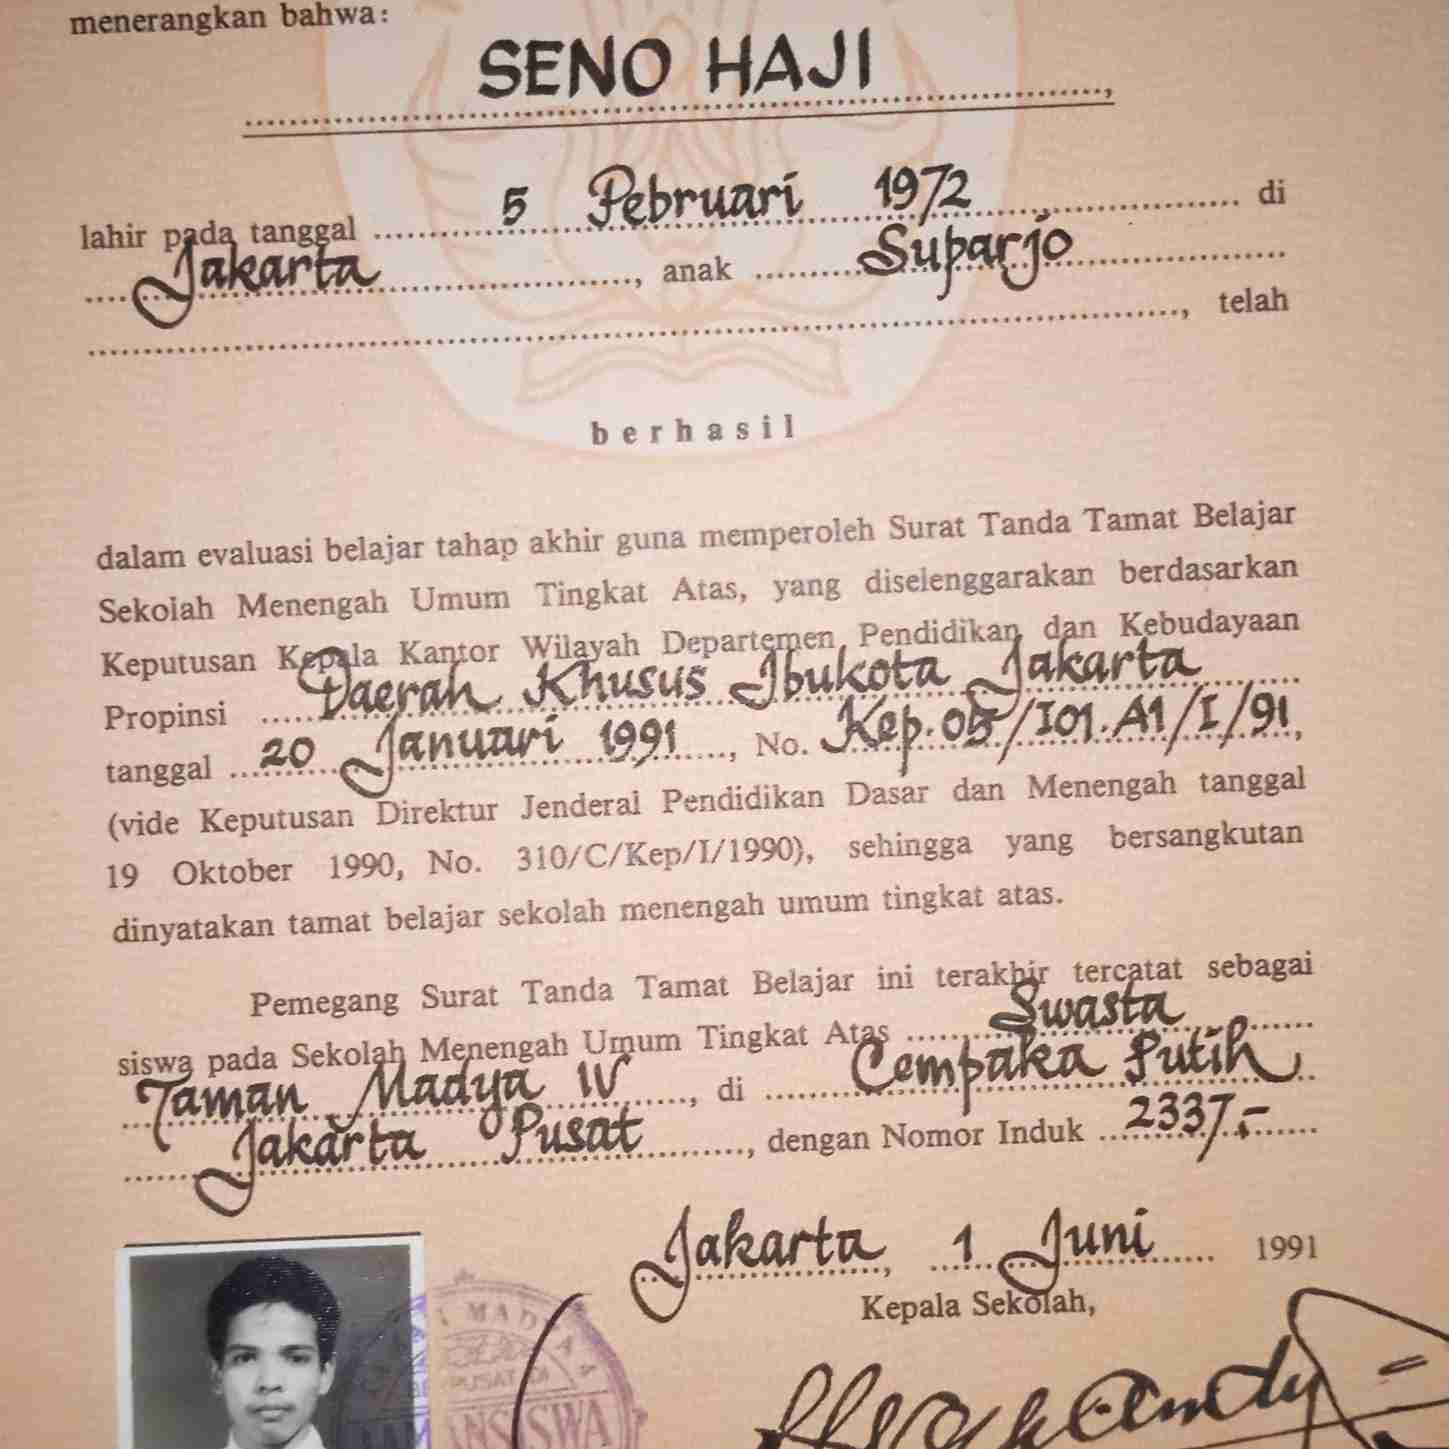 menerangkan bahwa:
SENO HAJI,
lahir pada tanggal 5 Pebruari 1972 di
Jakarta, anak Suparjo
, telah
berhasil
dalam evaluasi belajar tahap akhir guna memperoleh Surat Tanda Tamat Belajar
Sekolah Menengah Umum Tingkat Atas, yang diselenggarakan berdasarkan
Keputusan Kepala Kantor Wilayah Departemen Pendidikan dan Kebudayaan
Propinsi Daerah Khusus Ibukota Jakarta
tanggal 20 Januari 1991, No. Kep.05/I01.A1/I/91,
(vide Keputusan Direktur Jenderal Pendidikan Dasar dan Menengah tanggal
19 Oktober 1990, No. 310/C/Kep/I/1990), sehingga yang bersangkutan
dinyatakan tamat belajar sekolah menengah umum tingkat atas.
Pemegang Surat Tanda Tamat Belajar ini terakhir tercatat sebagai
siswa pada Sekolah Menengah Umum Tingkat Atas Swasta
Taman Madya IV, di Cempaka Putih
Jakarta Pusat, dengan Nomor Induk 2337,-
Jakarta, 1 Juni 1991
Kepala Sekolah,
PUSAT DI